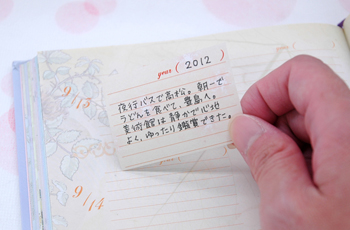 year ( 2012 )
9/13
夜行バスで高松。朝一で
うどんを食べて、豊島へ。
美術館は静かで心地
よく、ゆったり鑑賞できた。
9/14